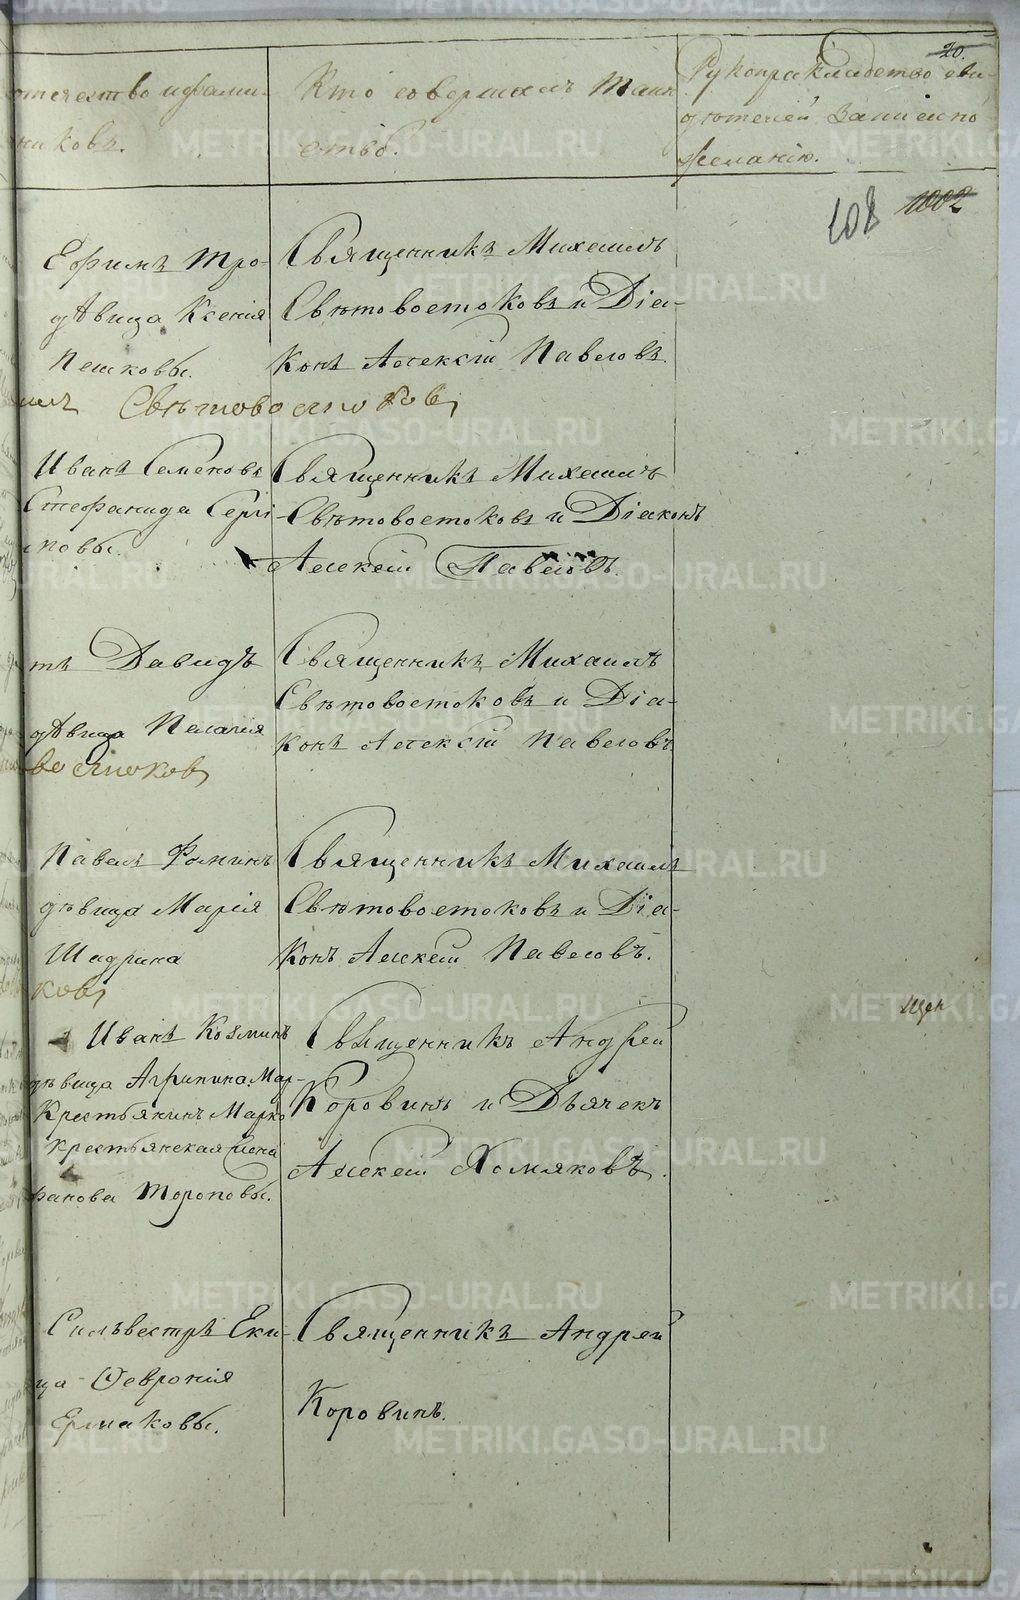 20.
отчество и фами-
никовъ.
Кто совершалъ Таин
ство.
Рукоприкладство сви-
дѣтелей записи по
желанію.
108 1002
Ефимъ Тро-
дѣвица Ксенія
Пешковы.
Священникъ Михаилъ
Свѣтовостоковъ и Діа-
конъ Алексій Павловъ.
илъ Свѣтовостоковъ
Иванъ Семеновъ
Стефанида Сергі
повы.
Священникъ Михаилъ
Свѣтовостоковъ и Діаконъ
Алексій Павловъ.
тъ Давидъ
дѣвица Пелагія
востоковъ
Священникъ Михаилъ
Свѣтовостоковъ и Діа-
конъ Алексій Павеловъ
Павелъ Фоминъ
дѣвица Марія
Шадрина
ковъ
Священникъ Михаилъ
Свѣтовостоковъ и Діа-
конъ Алексій Павеловъ.
Иванъ Козминъ
дѣвица Агрипина Мар-
Крестьянинъ Марко
крестьянская жена
фанова Тороповы.
Священникъ Андрей
Коровинъ и Дьячекъ
Алексей Хомяковъ.
Сильвестръ Еки-
ца Февронія
Ермаковы.
Священникъ Андрей
Коровинъ.
METRIKI.GASO-URAL.RU